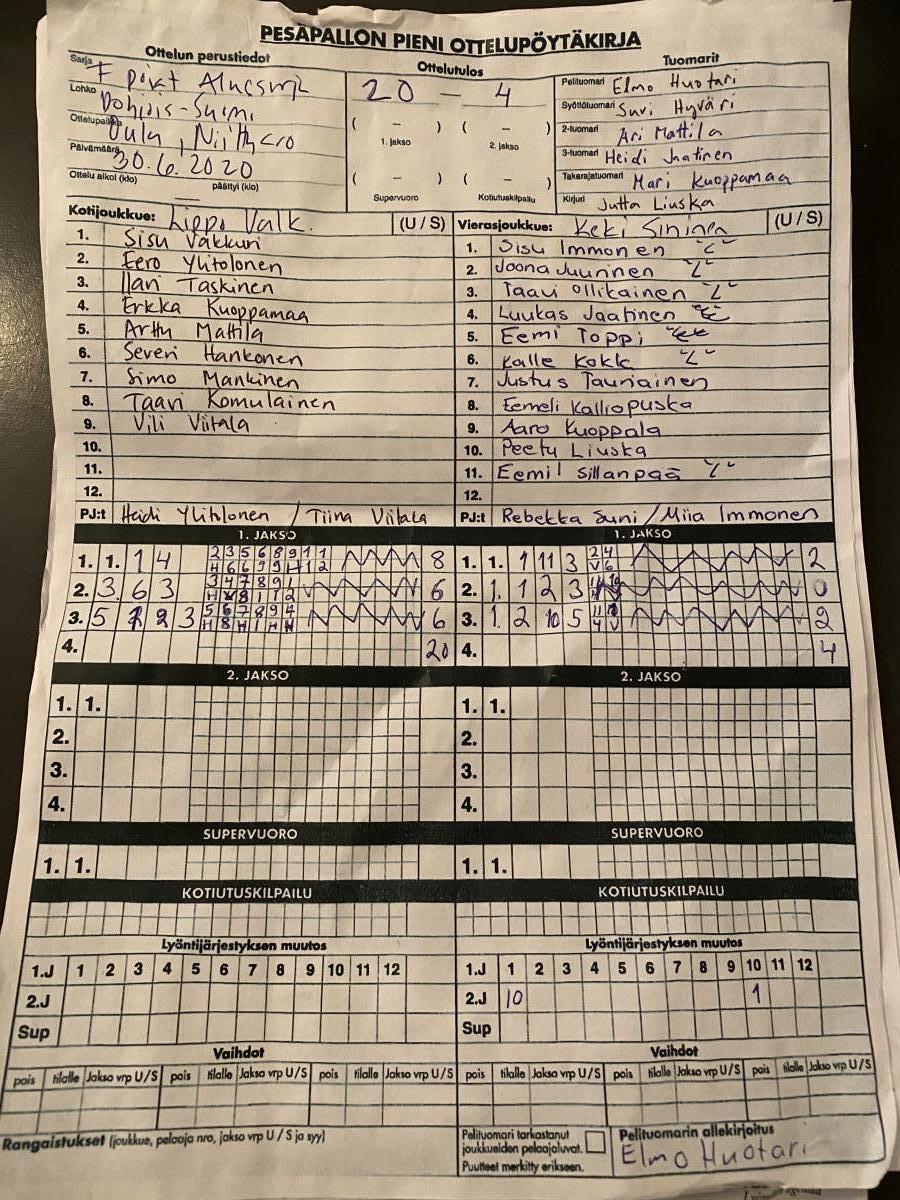 PESÄPALLON PIENI OTTELUPÖYTÄKIRJA
Ottelun perustiedot
Ottelutulos
Tuomarit
Sarja F pojat
Lohko Pohjois-Suomi
Ottelupaikka Oulu,
Päivämäärä 30.6.2020
Ottelu alkoi (klo) päättyi (klo)
20 – 4
( – ) ( – )
1. jakso 2. jakso
( – ) ( – )
Supervuoro Kotiutuskilpailu
Pelituomari Elmo Huotari
Syöttötuomari Suvi Hyväri
2-tuomari Ari Mattila
3-tuomari Heidi Jaatinen
Takarajatuomari Mari Kuoppamaa
Kirjuri Jutta Liuska
Kotijoukkue: Lippo Valk. (U / S)
1. Sisu Vakkuri
2. Eero Ylitolonen
3. Ilari Taskinen
4. Erkka Kuoppamaa
5. Arttu Mattila
6. Severi Hankonen
7. Simo Mankinen
8. Taavi Komulainen
9. Vili Viitala
10.
11.
12.
PJ:t Heidi Ylitolonen / Tiina Viitala
Vierasjoukkue: KeKi Sininen (U / S)
1. Sisu Immonen
2. Joona Juurinen "L"
3. Taavi Ollikainen "L"
4. Luukas Jaatinen
5. Eemi Toppi
6. Kalle Kokk "L"
7. Justus Tauriainen
8. Eemeli Kalliopuska
9. Aaro Kuoppala
10. Peetu Liuska
11. Eemil Sillanpää "L"
12.
PJ:t Rebekka Suni / Miia Immonen
1. JAKSO
1. 1. 1 4 8
2. 3. 6 3 6
3. 5 2 3 6
4. 20
1. JAKSO
1. 1. 1 11 3 2
2. 1. 1 2 3 0
3. 1. 2 10 5 2
4. 4
2. JAKSO
1. 1.
2.
3.
4.
2. JAKSO
1. 1.
2.
3.
4.
SUPERVUORO
1. 1.
SUPERVUORO
1. 1.
KOTIUTUSKILPAILU
KOTIUTUSKILPAILU
Lyöntijärjestyksen muutos
1.J 1 2 3 4 5 6 7 8 9 10 11 12
2.J
Sup
Lyöntijärjestyksen muutos
1.J 1 2 3 4 5 6 7 8 9 10 11 12
2.J 10 1
Sup
Vaihdot
pois tilalle Jakso vrp U/S pois tilalle Jakso vrp U/S pois tilalle Jakso vrp U/S
Vaihdot
pois tilalle Jakso vrp U/S pois tilalle Jakso vrp U/S pois tilalle Jakso vrp U/S
Rangaistukset (joukkue, pelaaja nro, jakso vrp U / S ja syy)
Pelituomari tarkastanut
joukkueiden pelaajaluvat.
Puutteet merkitty erikseen.
Pelituomarin allekirjoitus
Elmo Huotari